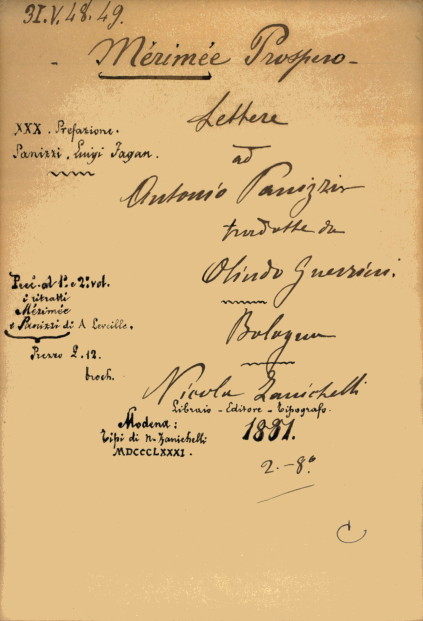 31.V.48.49.
- Mérimée Prospero -
Lettere
ad
Antonio Panizzi
tradotte da
Olindo Guerrini.
Bologna
Nicola Zanichelli
Libraio - Editore - Tipografo.
1881.
2.-8°
XXX. Prefazione.
Panizzi, Luigi Fagan.
Prec. al 1° e 2° vol.
i ritratti
Mérimée
e Panizzi di A Leveille.
Prezzo L. 12.
broch.
Modena:
Tipi di N. Zanichelli
MDCCCLXXXI.
C